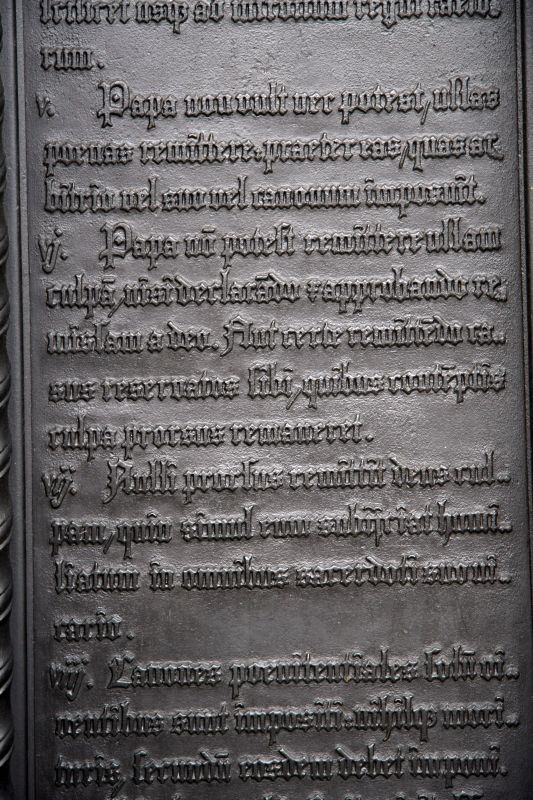 scilicet usqz ad introitum regni caelo.
rum.
v. Papa non vult nec potest, ullas
poenas remittere. praeter eas, quas ar,
bitrio vel suo vel canonum imposuit.
vj. Papa nō potest remittere ullam
culpā, nisi declarādo & approbando re,
missam a deo. Aut certe remittēdo ca..
sus reservatos sibi, quibus contēptis
culpa prorsus remaneret.
vij. Nulli prorsus remittit deus cul..
pam, quin simul eum subijciat humi..
liatum in omnibus sacerdoti suo vi..
cario.
viij. Canones poenitentiales solū vi..
ventibus sunt impositi. nihilqz mori..
turis, secundū eosdem debet imponi.